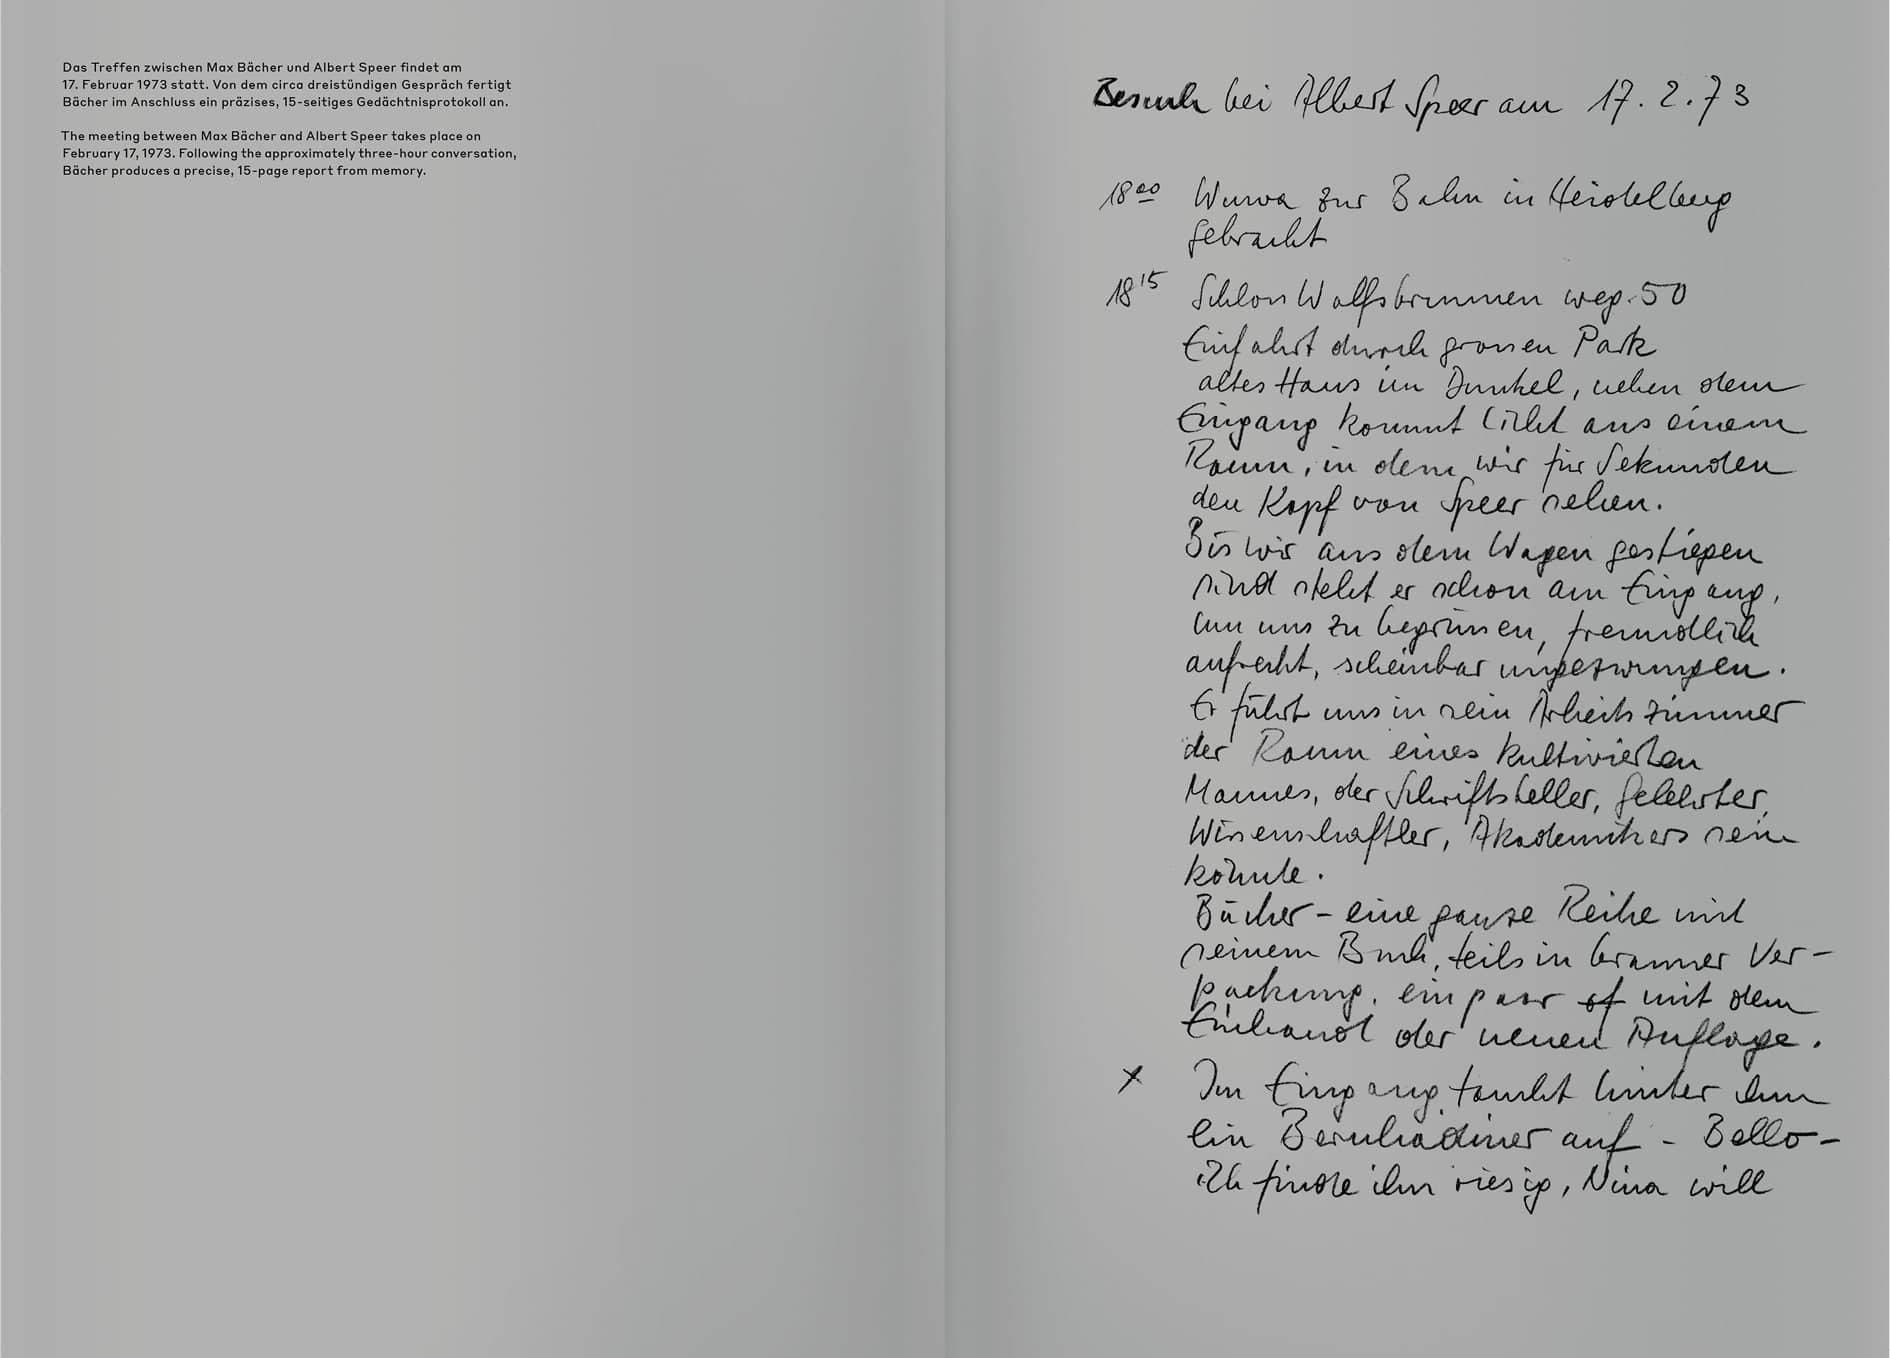 Das Treffen zwischen Max Bächer und Albert Speer findet am
17. Februar 1973 statt. Von dem circa dreistündigen Gespräch fertigt
Bächer im Anschluss ein präzises, 15-seitiges Gedächtnisprotokoll an.
The meeting between Max Bächer and Albert Speer takes place on
February 17, 1973. Following the approximately three-hour conversation,
Bächer produces a precise, 15-page report from memory.
Besuch bei Albert Speer am 17.2.73
18 00 zur Bahn in Heidelberg
gebracht
18 15 Schloss Wolfsbrunnen weg 50
Einfahrt durch grossen Park
altes Haus im Dunkel, neben dem
Eingang kommt Licht aus einem
Raum, in dem wir für Sekunden
den Kopf von Speer sehen.
Bis wir aus dem Wagen gestiegen
sind steht er schon am Eingang,
um uns zu begrüssen, freundlich
aufrecht, scheinbar ungezwungen.
Er führt uns in sein Arbeitszimmer
der Raum eines kultivierten
Mannes, der Schriftsteller, Gelehrter,
Wissenschaftler, Akademikers sein
könnte.
Bücher – eine ganze Reihe mit
seinem Buch, teils in brauner Ver-
packung, ein paar mit dem
Einband der neuen Auflage.
x Im Eingang taucht hinter ihm
ein Bernhadiner auf – Bello –
ich finde ihn riesig, Nina will